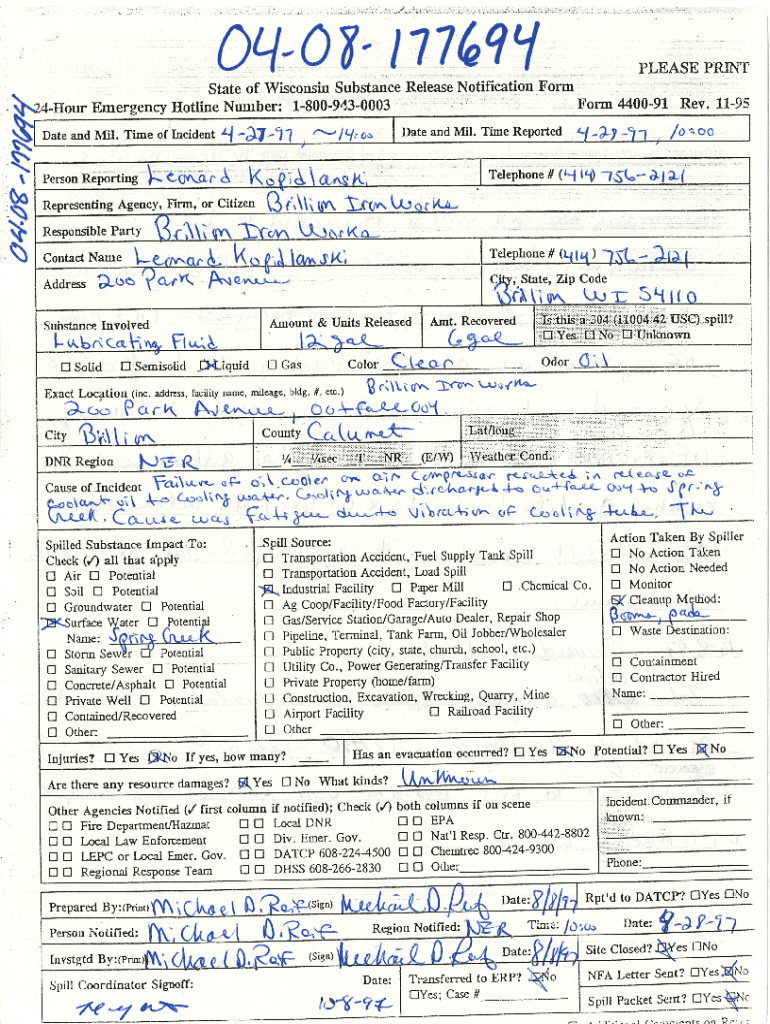 04-08-177694
PLEASE PRINT
State of Wisconsin Substance Release Notification Form
24-Hour Emergency Hotline Number: 1-800-943-0003 Form 4400-91 Rev. 11-95
04-08-177694
Date and Mil. Time of Incident 4-27-97, ~14:00 Date and Mil. Time Reported 4-28-97, 10:00
Person Reporting Leonard Kopidlanski Telephone # (414) 756-2121
Representing Agency, Firm, or Citizen Brillion Iron Works
Responsible Party Brillion Iron Works
Contact Name Leonard Kopidlanski Telephone # (414) 756-2121
Address 200 Park Avenue City, State, Zip Code
Brillion WI 54110
Substance Involved Amount & Units Released Amt. Recovered Is this a 304 (11004 42 USC) spill?
Lubricating Fluid 12 gal 6 gal ☐ Yes ☐ No ☐ Unknown
☐ Solid ☐ Semisolid ☒ Liquid ☐ Gas Color Clear Odor Oil
Exact Location (inc. address, facility name, mileage, bldg. #, etc.) Brillion Iron Works
200 Park Avenue, Outfall 004
City Brillion County Calumet Lat/long
DNR Region NER ¼ ¼ sec T NR (E/W) Weather Cond.
Cause of Incident Failure of oil cooler on air compressor resulted in release of
coolant oil to cooling water. Cooling water discharged to outfall 004 to Spring
Creek. Cause was fatigue due to vibration of cooling tube. The
Spilled Substance Impact To: Spill Source: Action Taken By Spiller
Check (✓) all that apply ☐ Transportation Accident, Fuel Supply Tank Spill ☐ No Action Taken
☐ Air ☐ Potential ☐ Transportation Accident, Load Spill ☐ No Action Needed
☐ Soil ☐ Potential ☒ Industrial Facility ☐ Paper Mill ☐ Chemical Co. ☐ Monitor
☐ Groundwater ☐ Potential ☐ Ag Coop/Facility/Food Factory/Facility ☒ Cleanup Method:
☒ Surface Water ☐ Potential ☐ Gas/Service Station/Garage/Auto Dealer, Repair Shop Booms, pads
Name: Spring Creek ☐ Pipeline, Terminal, Tank Farm, Oil Jobber/Wholesaler ☐ Waste Destination:
☐ Storm Sewer ☐ Potential ☐ Public Property (city, state, church, school, etc.)
☐ Sanitary Sewer ☐ Potential ☐ Utility Co., Power Generating/Transfer Facility ☐ Containment
☐ Concrete/Asphalt ☐ Potential ☐ Private Property (home/farm) ☐ Contractor Hired
☐ Private Well ☐ Potential ☐ Construction, Excavation, Wrecking, Quarry, Mine Name:
☐ Contained/Recovered ☐ Airport Facility ☐ Railroad Facility
☐ Other: ☐ Other ☐ Other:
Injuries? ☐ Yes ☒ No If yes, how many? Has an evacuation occurred? ☐ Yes ☒ No Potential? ☐ Yes ☒ No
Are there any resource damages? ☒ Yes ☐ No What kinds? Unknown
Other Agencies Notified (✓ first column if notified); Check (✓) both columns if on scene Incident Commander, if
☐ ☐ Fire Department/Hazmat ☐ ☐ Local DNR ☐ ☐ EPA known:
☐ ☐ Local Law Enforcement ☐ ☐ Div. Emer. Gov. ☐ ☐ Nat'l Resp. Ctr. 800-442-8802
☐ ☐ LEPC or Local Emer. Gov. ☐ ☐ DATCP 608-224-4500 ☐ ☐ Chemtrec 800-424-9300
☐ ☐ Regional Response Team ☐ ☐ DHSS 608-266-2830 ☐ ☐ Other Phone:
Prepared By:(Print) Michael D. Reif (Sign) Michael D. Reif Date: 8/8/97 Rpt'd to DATCP? ☐Yes ☐No
Person Notified: Michael D. Reif Region Notified: NER Time: 10:00 Date: 4-28-97
Invstgtd By:(Print) Michael D. Reif (Sign) Michael D. Reif Date: 8/8/97 Site Closed? ☒Yes ☐No
Spill Coordinator Signoff: Date: Transferred to ERP? ☒No NFA Letter Sent? ☐Yes ☒No
10-8-97 ☐Yes; Case # Spill Packet Sent? ☐Yes ☒No